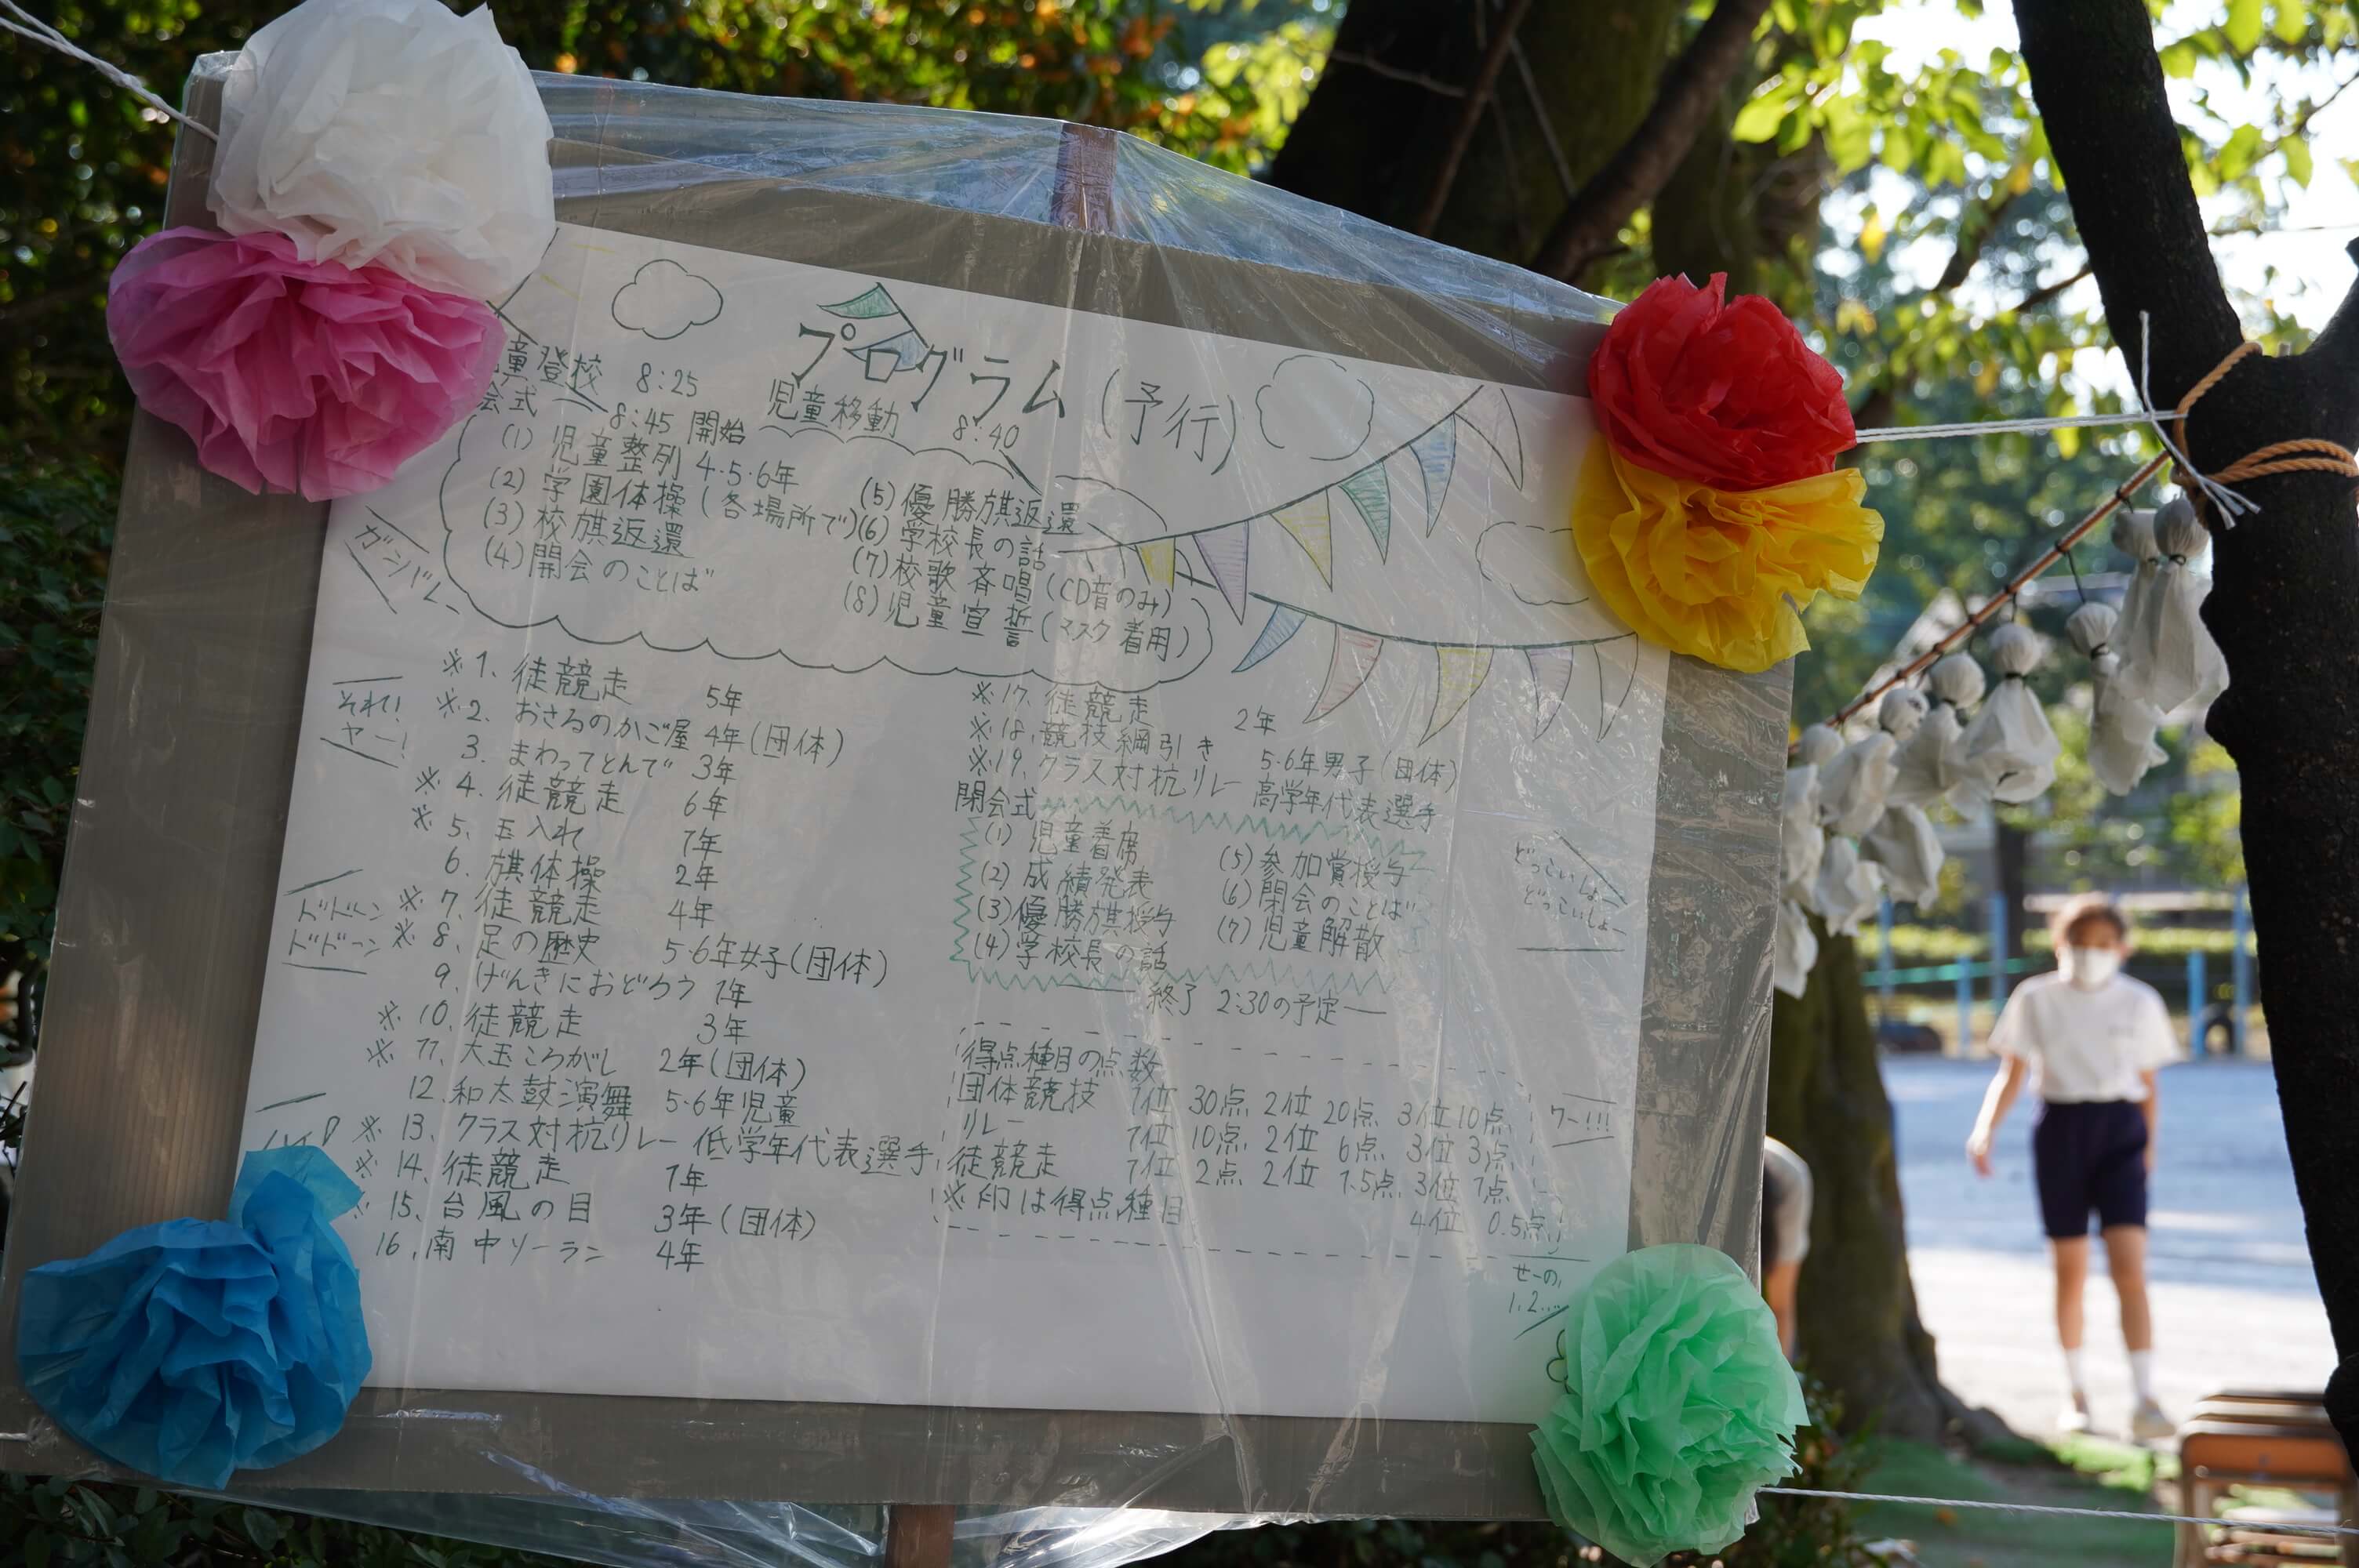 プログラム (予行)
童登校 8:25 児童移動 8:40
会式 8:45 開始
(1) 児童整列 4・5・6年
(2) 学園体操 (各場所で)
(3) 校旗返還
(4) 開会のことば
(5) 優勝旗返還
(6) 学校長の話
(7) 校歌斉唱 (CD音のみ)
(8) 児童宣誓 (マスク着用)
ガンバレー
それ!
ヤー!
※1. 徒競走 5年
※2. おさるのかご屋 4年(団体)
3. まわってとんで 3年
※4. 徒競走 6年
※5. 玉入れ 1年
6. 旗体操 2年
※7. 徒競走 4年
※8. 足の歴史 5・6年女子(団体)
9. げんきにおどろう 1年
※10. 徒競走 3年
※11. 大玉ころがし 2年(団体)
12. 和太鼓演舞 5・6年児童
※13. クラス対抗リレー 低学年代表選手
※14. 徒競走 1年
※15. 台風の目 3年(団体)
16. 南中ソーラン 4年
ドドーン
ドドーン
※17. 徒競走 2年
※18. 競技綱引き 5・6年男子(団体)
※19. クラス対抗リレー 高学年代表選手
閉会式
(1) 児童着席
(2) 成績発表
(3) 優勝旗授与
(4) 学校長の話
(5) 参加賞授与
(6) 閉会のことば
(7) 児童解散
終了 2:30の予定
どっこいしょー
どっこいしょー
得点種目の点数
団体競技 1位 30点 2位 20点 3位 10点
リレー 1位 10点 2位 6点 3位 3点
徒競走 1位 2点 2位 1.5点 3位 1点
4位 0.5点
※印は得点種目
ワー!!!
せーの,
1.2...